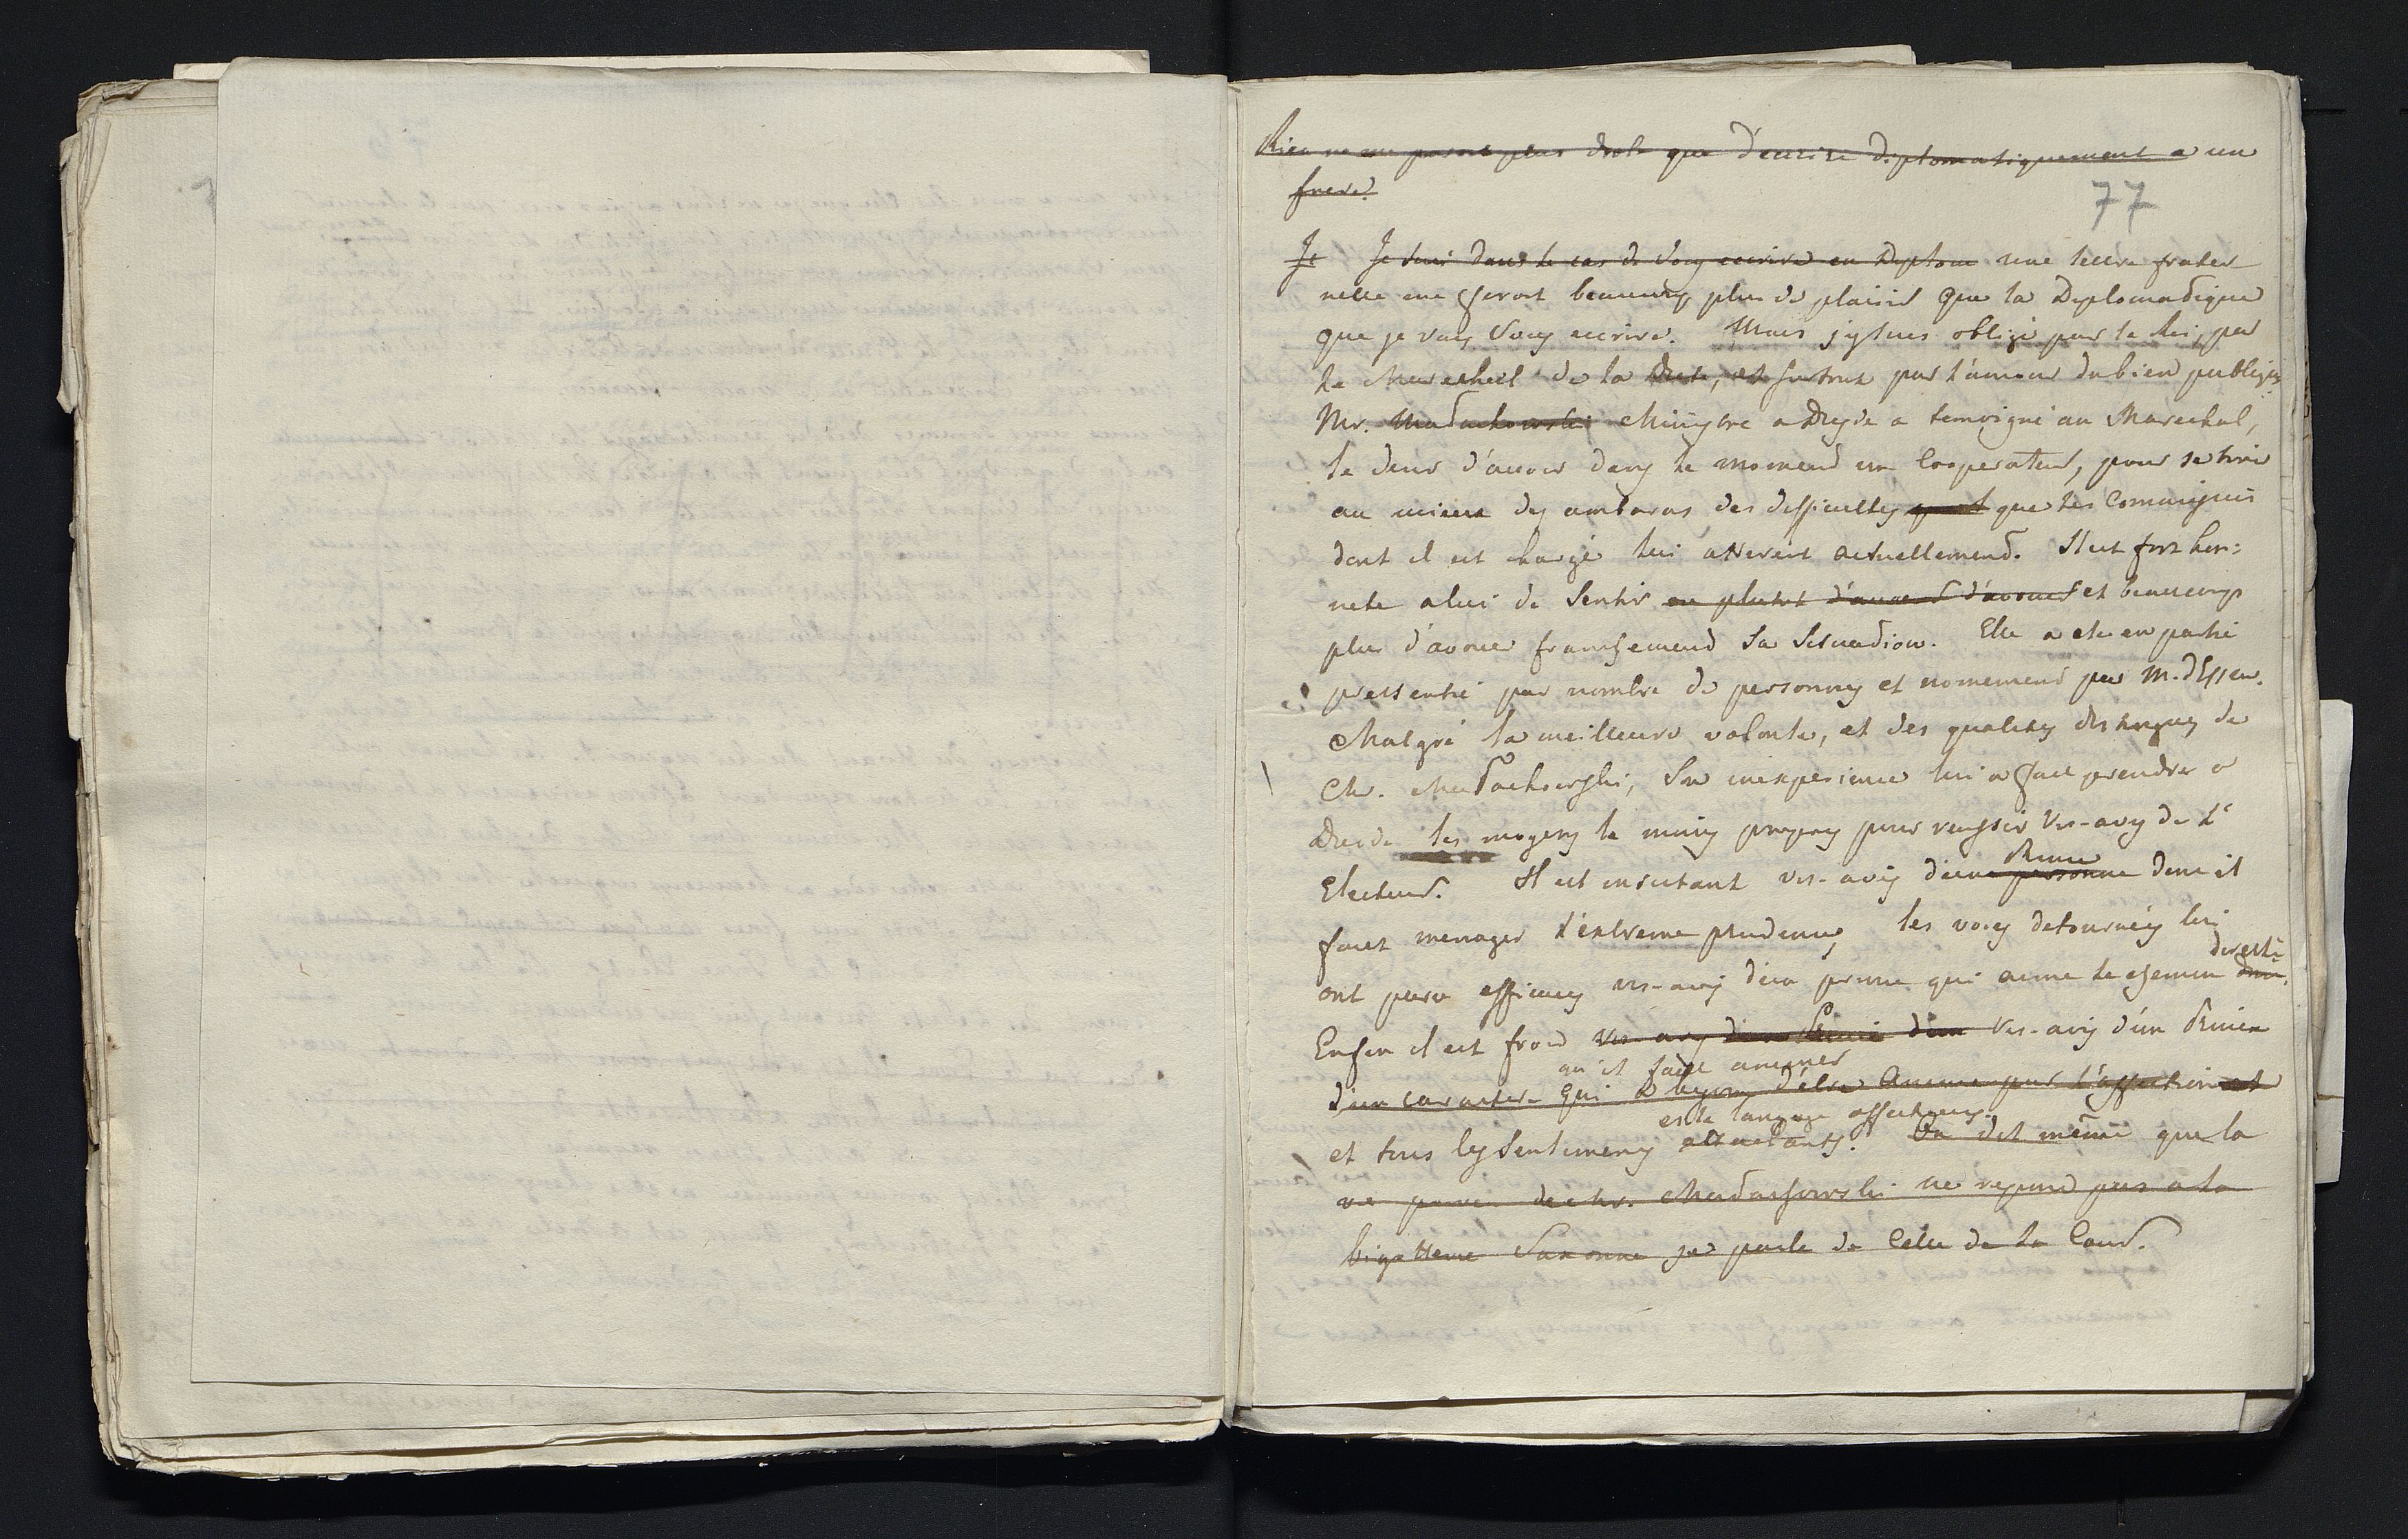 Rien ne me paroit plus drole que d'ecrire diplomatiquement a un
frere.
77
Je Je suis dans le cas de vous ecrire en Diplom une lettre frater
nelle me feroit beaucoup plus de plaisir que la Diplomatique
que je vais vous ecrire. Mais j'y suis obligé par le Roi, par
le Marechal de la Diete, et surtout par l'amour du bien publique
Mr. Malachowski Ministre a Dresde a temoigné au Marechal,
le desir d'avoir dans le moment un Cooperateur, pour se tirer
au mieux des ambaras des difficultes que les Comissions
dont il est chargé lui attirent actuellement. Il est fort hon=
nete a lui de sentir ou plutot d'avouer d'avouer et beaucoup
plus d'avouer franchement sa situation. Elle a ete en partie
pressentie par nombre de personnes et nomement par M. d'Essen.
Malgré la meilleure volonte, et des qualites distinguees de
Mr. Malachowski, son inexperience lui a fait prendre a
Dresde les moyens le moins propres pour reussir vis-avis de l'
Electeur. Il est insistant vis-avis d'une personne dont il
Prince
faut menager l'extreme prudence, les voies detournées lui
directe
ont paru efficaces vis-avis d'un prince qui aime le chemin
Enfin il est froid vis-avis d'un Prince d'un vis-avis d'un Prince
qu'il faut animer
d'un caractere qui a besoin d'etre anime par l'affection et
et le langage affectueux.
et tous les sentimens attachants. On dit même que la
vie privée de Mr. Malachowski ne repond pas a la
bigotterie Saxonne je parle de celle de la Cour.